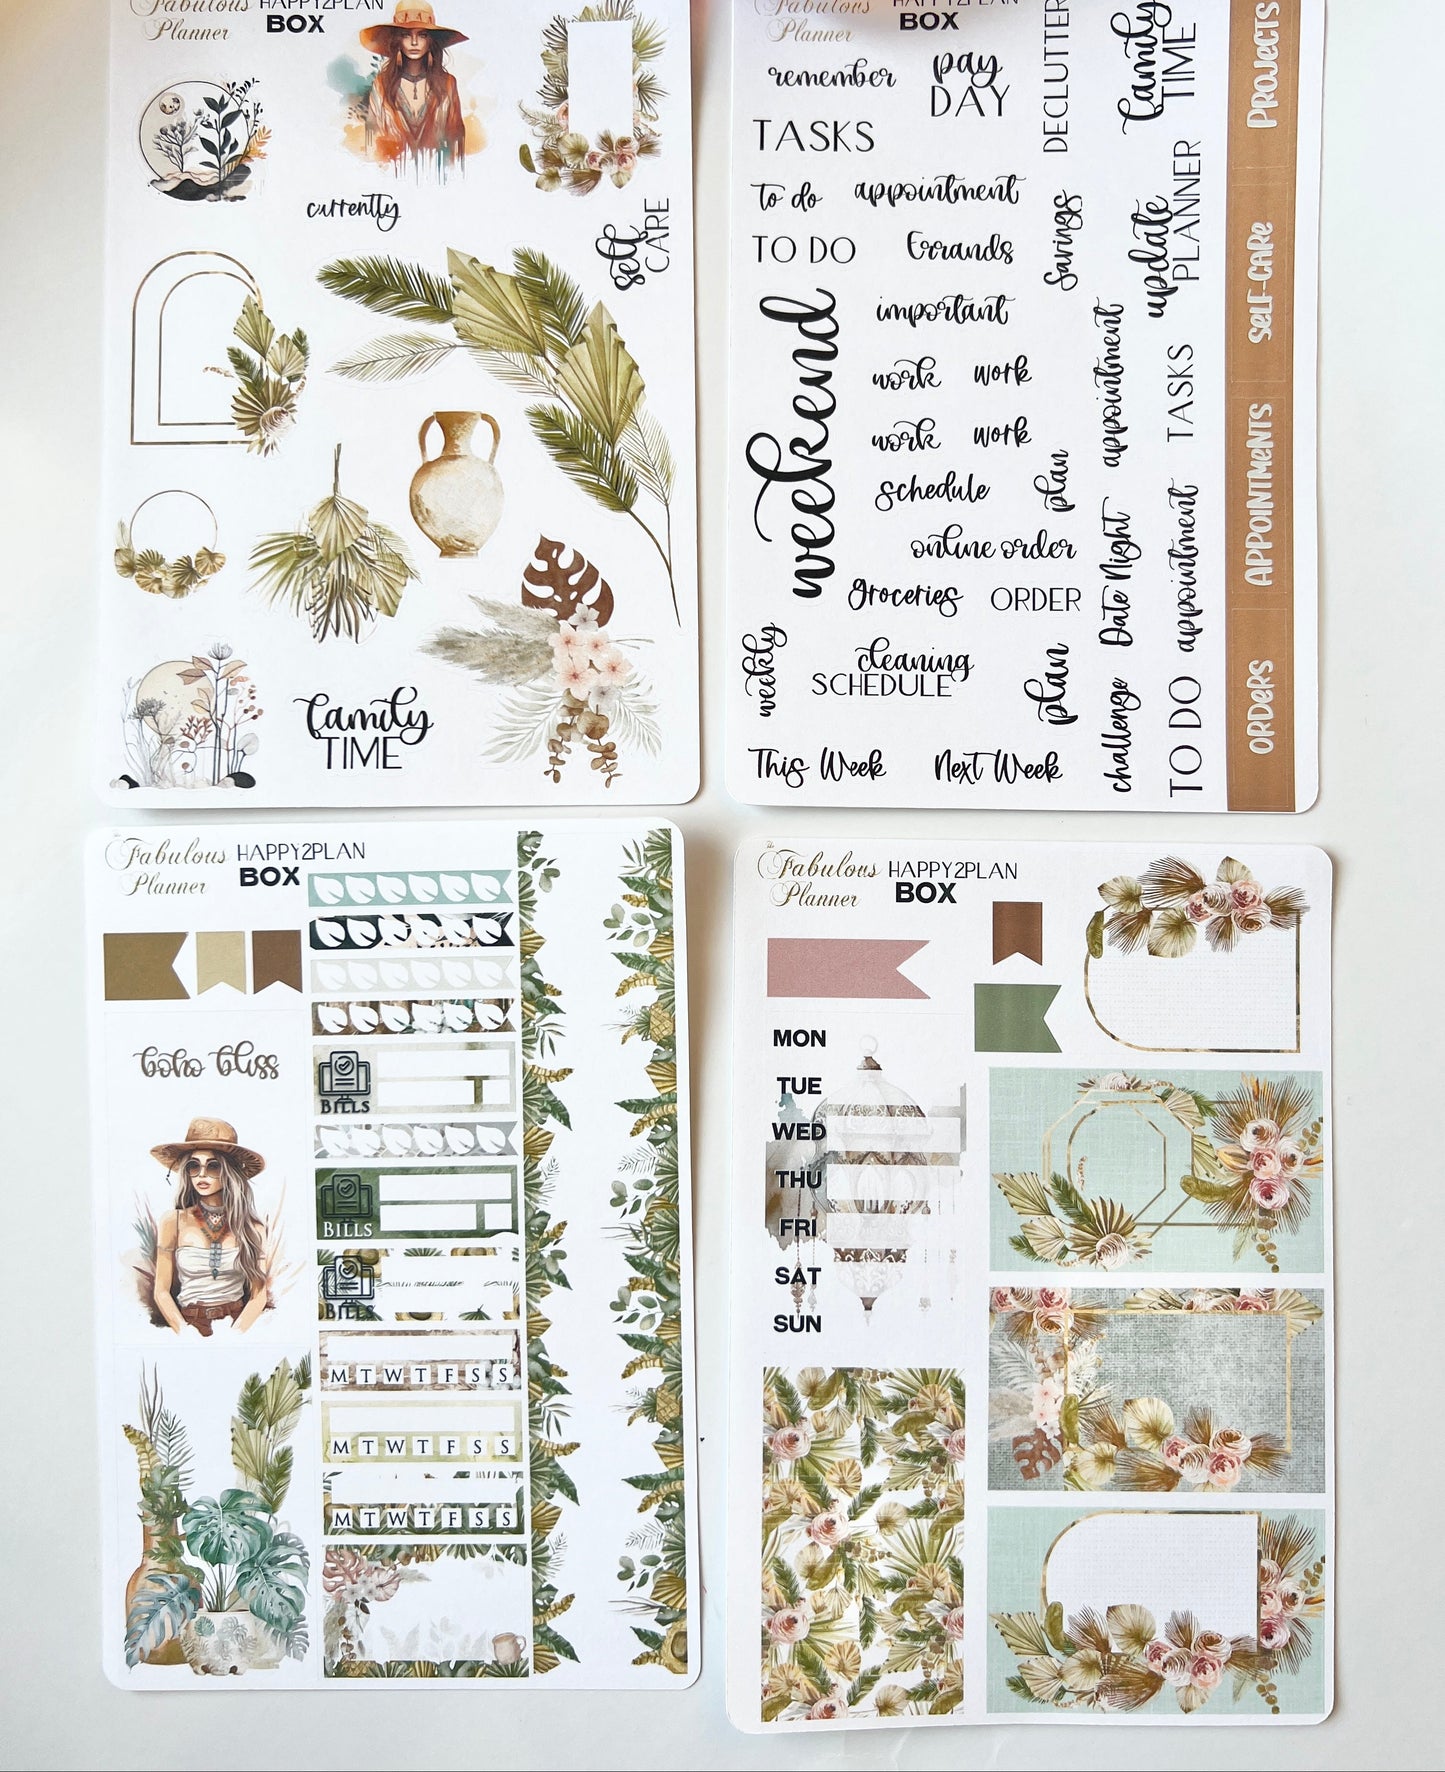 Fabulous
Planner
HAPPY2PLAN
BOX
currently
self
CARE
family
TIME
Fabulous
Planner
HAPPY2PLAN
BOX
remember
pay
DAY
TASKS
to do
appointment
TO DO
Errands
important
weekend
work
work
work
work
schedule
plan
online order
groceries
ORDER
weekly
cleaning
SCHEDULE
plan
This Week
Next Week
DECLUTTER
Savings
appointment
Date Night
challenge
family
TIME
update
PLANNER
TASKS
appointment
TO DO
PROJECTS
SELF-CARE
APPOINTMENTS
ORDERS
the
Fabulous
Planner
HAPPY2PLAN
BOX
boho bliss
BILLS
BILLS
BILLS
M T W T F S S
M T W T F S S
M T W T F S S
the
Fabulous
Planner
HAPPY2PLAN
BOX
MON
TUE
WED
THU
FRI
SAT
SUN